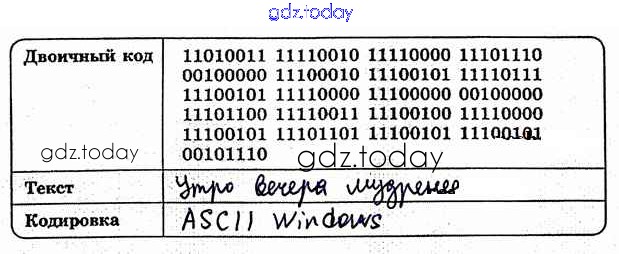 gdz.today
Двоичный код
11010011 11110010 11110000 11101110
00100000 11100010 11100101 11110111
11100101 11110000 11100000 00100000
11101100 11110011 11100100 11110000
11100101 11101101 11100101 11100101
00101110
gdz.today
gdz.today
Текст Утро вечера мудренее
Кодировка ASCII Windows